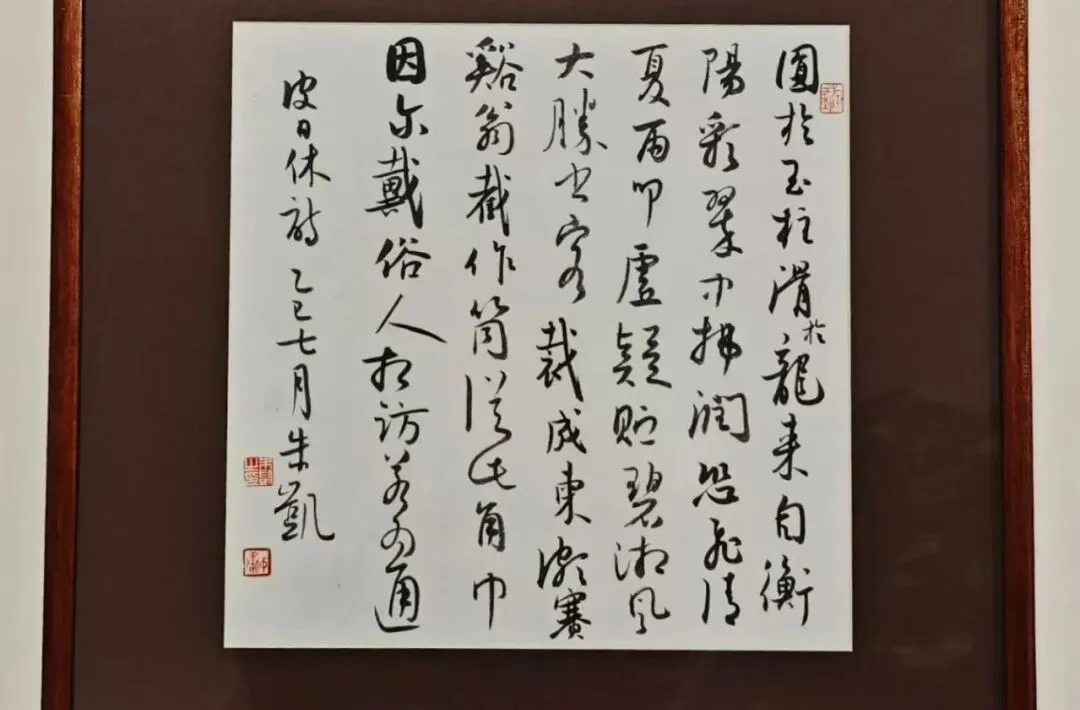 圓於玉柱滑於龍来自衡
陽彩翠中拂潤恐飛清
夏雨叩虛疑貯碧湘風
大勝书客裁成柬賽
谿翁截作筒從此角巾
因尔戴俗人相訪若为通
皮日休詩 乙巳七月朱凱